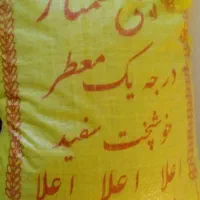 ممتاز
درجه یک معطر
خوشپخت سفید
اعلا اعلا اعلا